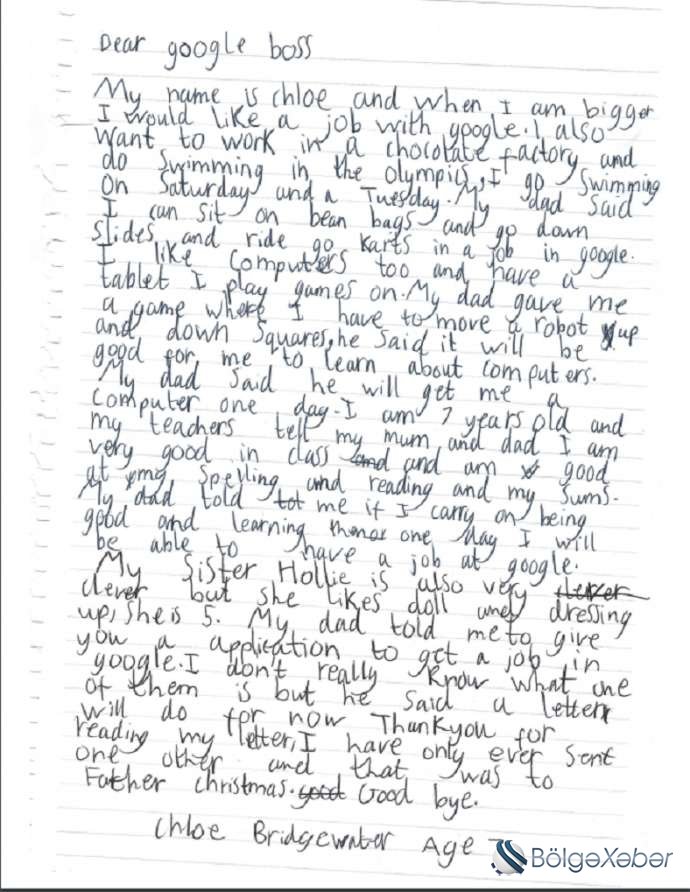 Dear google boss
My name is chloe and when I am bigger
I would like a job with google. I also
want to work in a chocolate factory and
do swimming in the olympics, I go swimming
on Saturday and a Tuesday. My dad said
I can sit on bean bags and go down
slides and ride go karts in a job in google.
I like computers too and have a
tablet I play games on. My dad gave me
a game where I have to move a robot up
and down squares, he said it will be
good for me to learn about computers.
My dad said he will get me a
computer one day. I am 7 years old and
my teachers tell my mum and dad I am
very good in class and and am good
at my spelling and reading and my sums.
My dad told tot me if I carry on being
good and learning one day I will
be able to have a job at google.
My Sister Hollie is also very clever
clever but she likes doll and dressing
up, she is 5. My dad told me to give
you a application to get a job in
google. I don't really know what one
of them is but he said a letter
will do for now Thankyou for
reading my letter, I have only ever sent
one other and that was to
Father christmas. good Good bye.
Chloe Bridgewater Age
BölgəXəbər